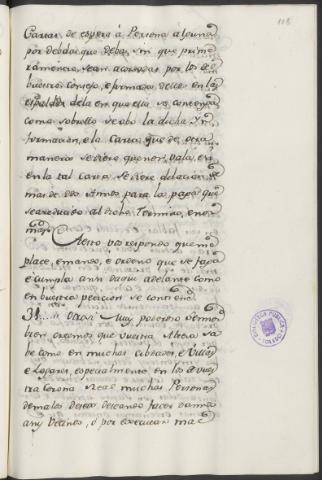 118
Cartas de espera à Persona alguna
por debda que deba, sin que prime
ramente sean acordadas por los de
vuestro Consejo, e firmadas dellos en las
espaldas dela en que ella se contenga
como sobrello se obo la dicha In
formacion, e la Carta que de otra
manera se diere que non vala, e si
en la tal carta se diere dilacion
mas de dos Annos para la paga que
sea reducido al dicho Termino, e non
mas
Aesto vos respondo que me
place, e mando, e ordeno que se faga
e cumpla ansi daqui adelante como
en vuestra peticion se contiene
31 Otrosi Muy poderoso Sennor
bien creemos que vuestra Alteza sa
be como en muchas cibdades, e Villas
e Logares, especialmente en los de vues
tra Corona Real muchas Personas
de malos deseos deseando facer dannos
a ny Vecinos, ó por executar mal
BIBLIOTECA PUBLICA
TOLEDO